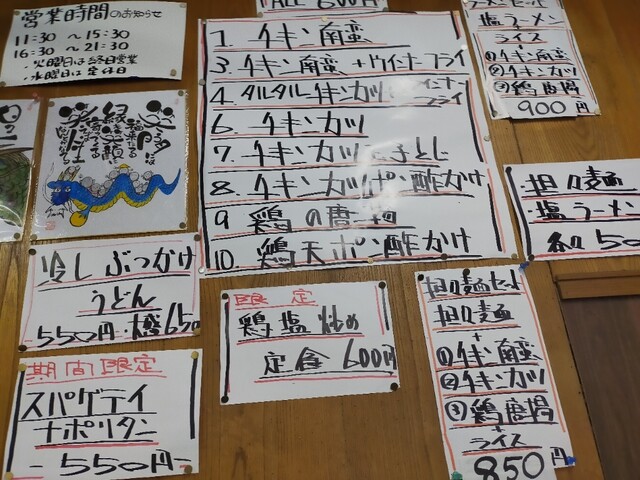 営業時間のお知らせ
11:30 ～15:30
16:30 ～21:30
・火曜日は終日営業
・水曜日は定休日
ALL 600円
1. チキン南蛮
3. チキン南蛮+ウインナーフライ
4. タルタルチキンカツ ウインナーフライ
6. チキンカツ
7. チキンカツ玉子とじ
8. チキンカツポン酢かけ
9 鶏の唐揚
10. 鶏天ポン酢かけ
塩ラーメン
ライス
+
①チキン南蛮
②チキンカツ
③鶏唐揚
900円
担々麺
塩ラーメン
冷しぶっかけ
うどん
550円・大盛650
限定
鶏塩炒め
定食600円
期間限定
スパゲティ
ナポリタン
-550円-
担々麺セット
担々麺
+
①チキン南蛮
②チキンカツ
③鶏唐揚
+
ライス
850円